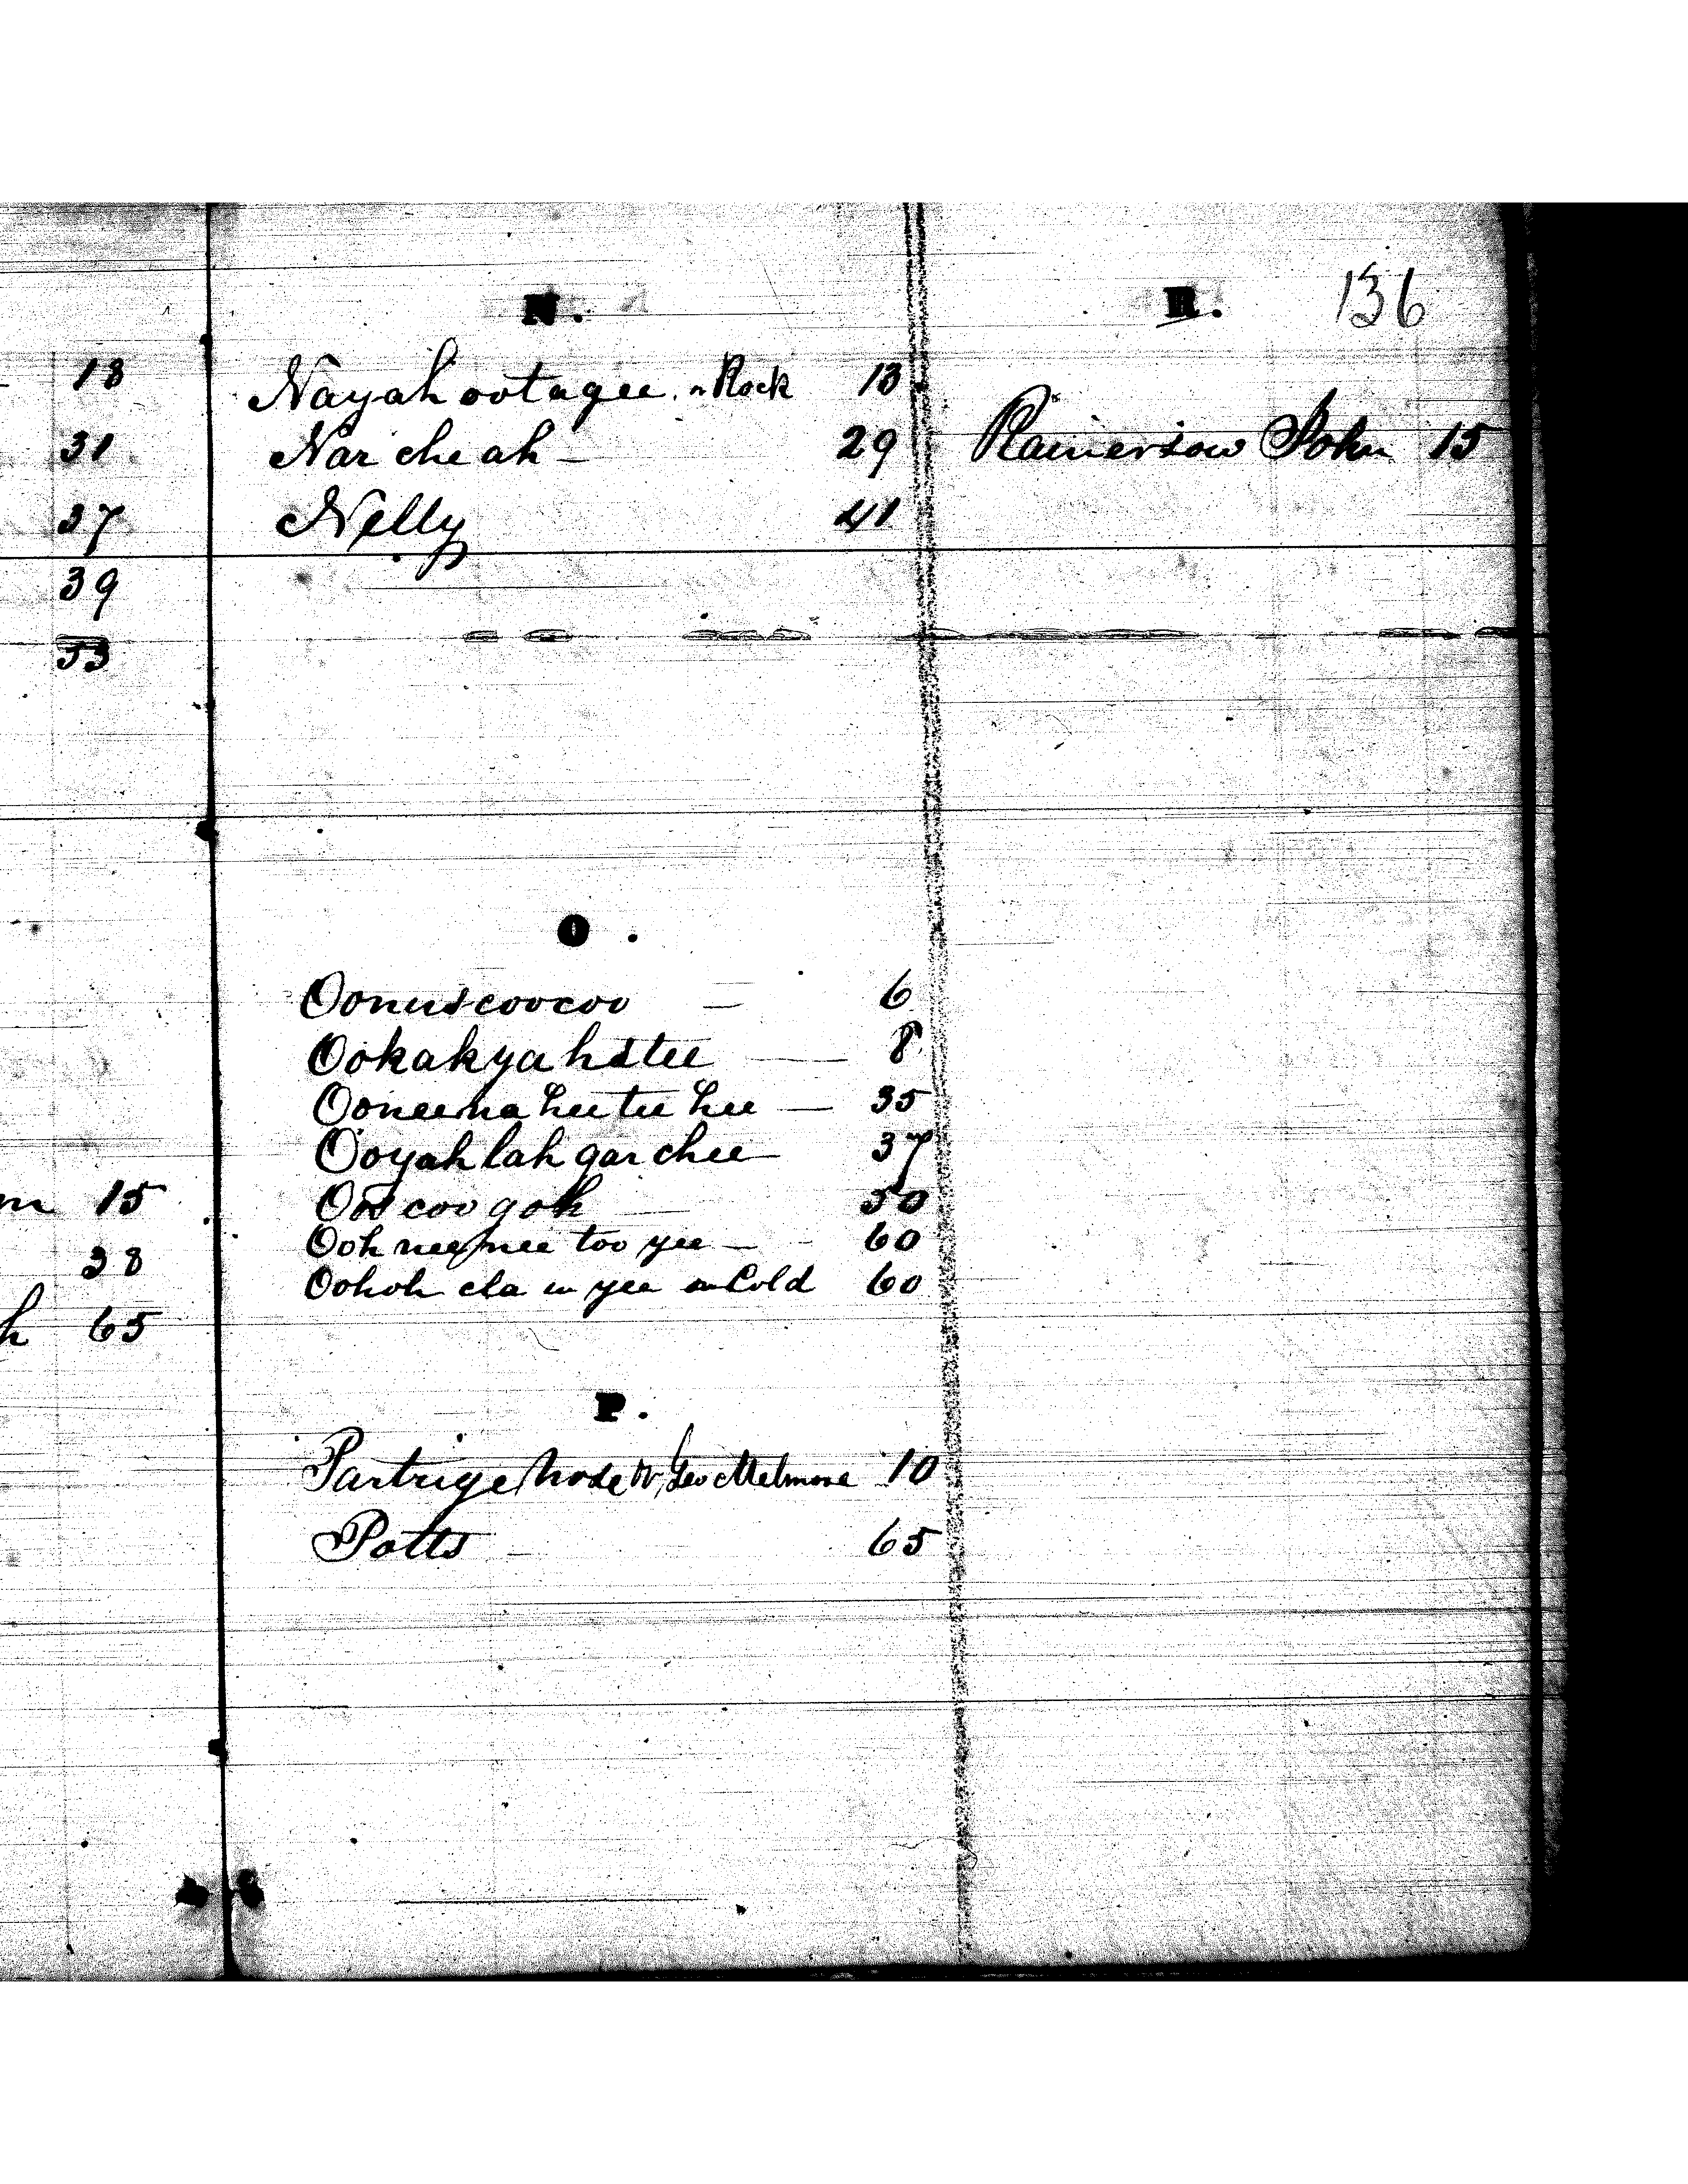 18
31
37
39
33
m 15
38
h 65
N.
Nayahootagee. or Rock 13
Nar che ah - 29
Nelly 41
O.
Oonuscoocoo - 6
Ookakyahstee - 8
Ooneena hee tee hee - 35
Ooyah lah gar chee - 37
Oos coo goh - 50
Ooh nee nee too yee - 60
Oohoh cla un yee or Cold 60
P.
Partrige Nose or 10
Potts 65
R. 136
John 15